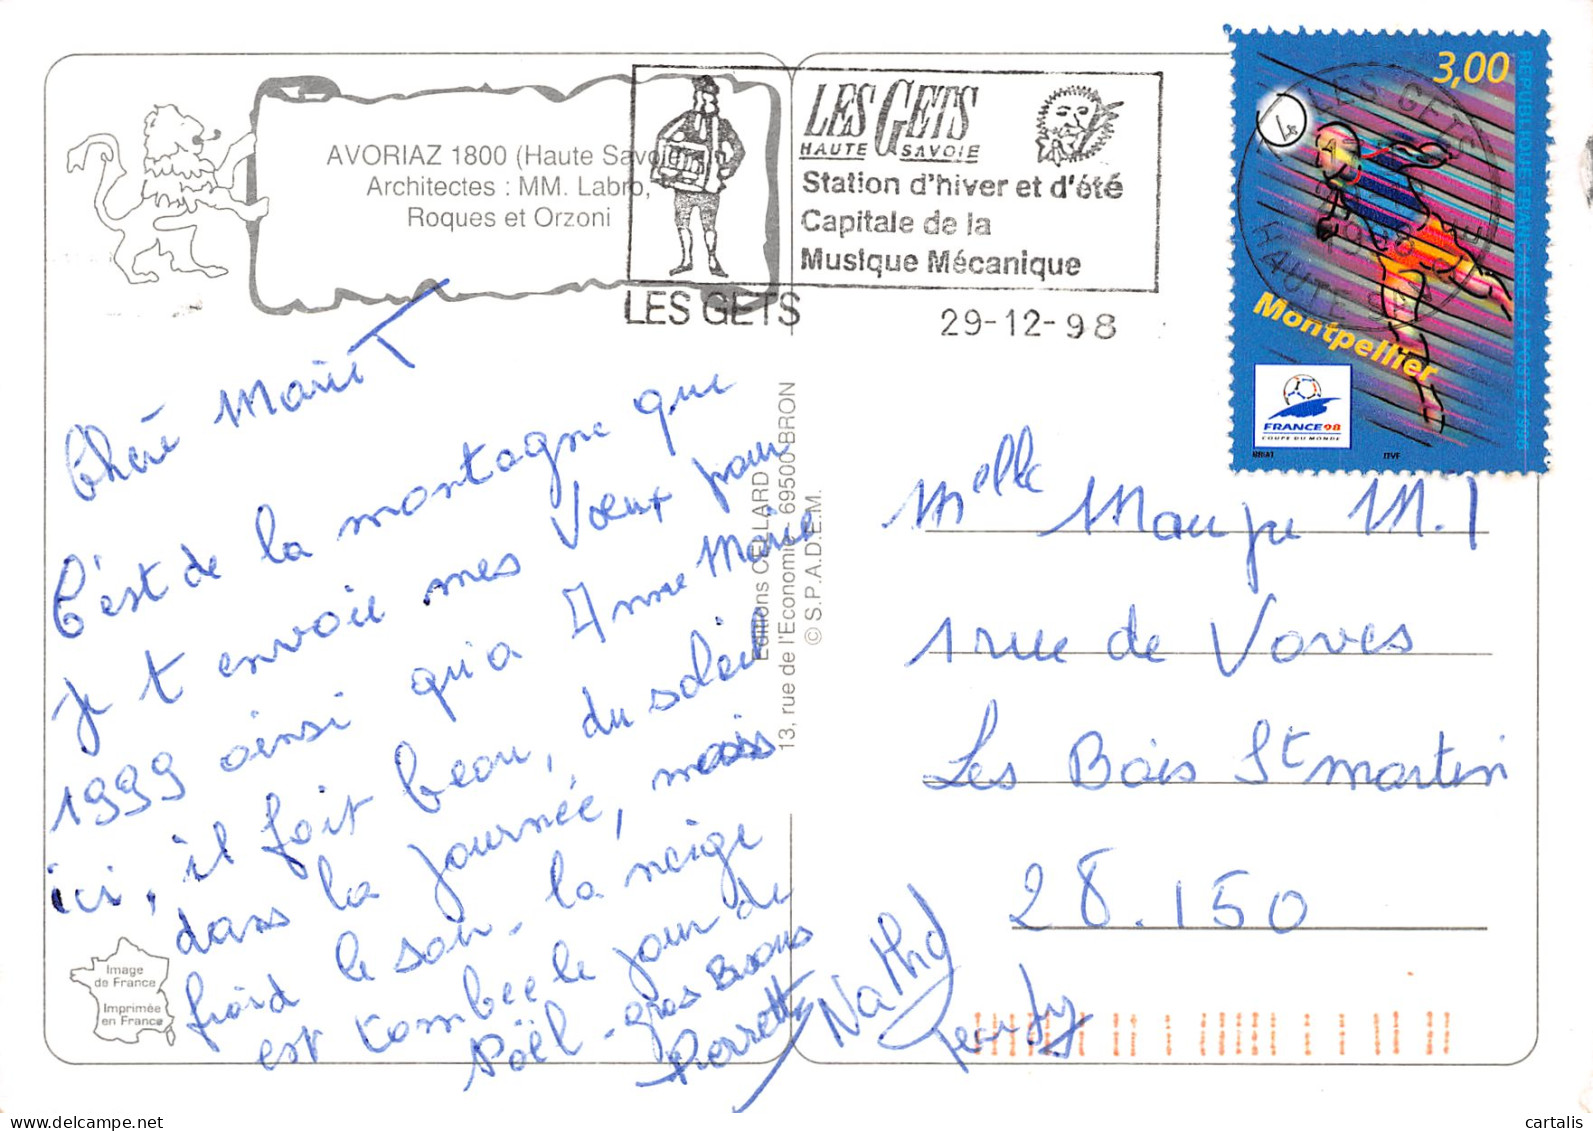 AVORIAZ 1800 (Haute Savoie)
Architectes : MM. Labro,
Roques et Orzoni
LES GETS
HAUTE SAVOIE
Station d'hiver et d'été
Capitale de la
Musique Mécanique
LES GETS
29-12-98
3,00
REPUBLIQUE FRANÇAISE LA POSTE 1998
LES GETS
1998
HAUTE SAVOIE
Montpellier
FRANCE 98
COUPE DU MONDE
BRIAT
ITVF
Chère Marie T
C'est de la montagne que
je t envoie mes Vœux pour
1999 ainsi qu'a Anne Marie
ici, il fait beau, du soleil
dans la journée, mais
froid le soir - la neige
est tombée le jour de
Noël - gros Bisous
Pierrette
Nathd
Editions CELLARD
13, rue de l'Economie - 69500 BRON
© S.P.A.D.E.M.
Melle Maupu M.T
1 rue de Voves
Les Bois St martin
28.150
Image
de France
Imprimée
en France
cartalis
delcampe.net